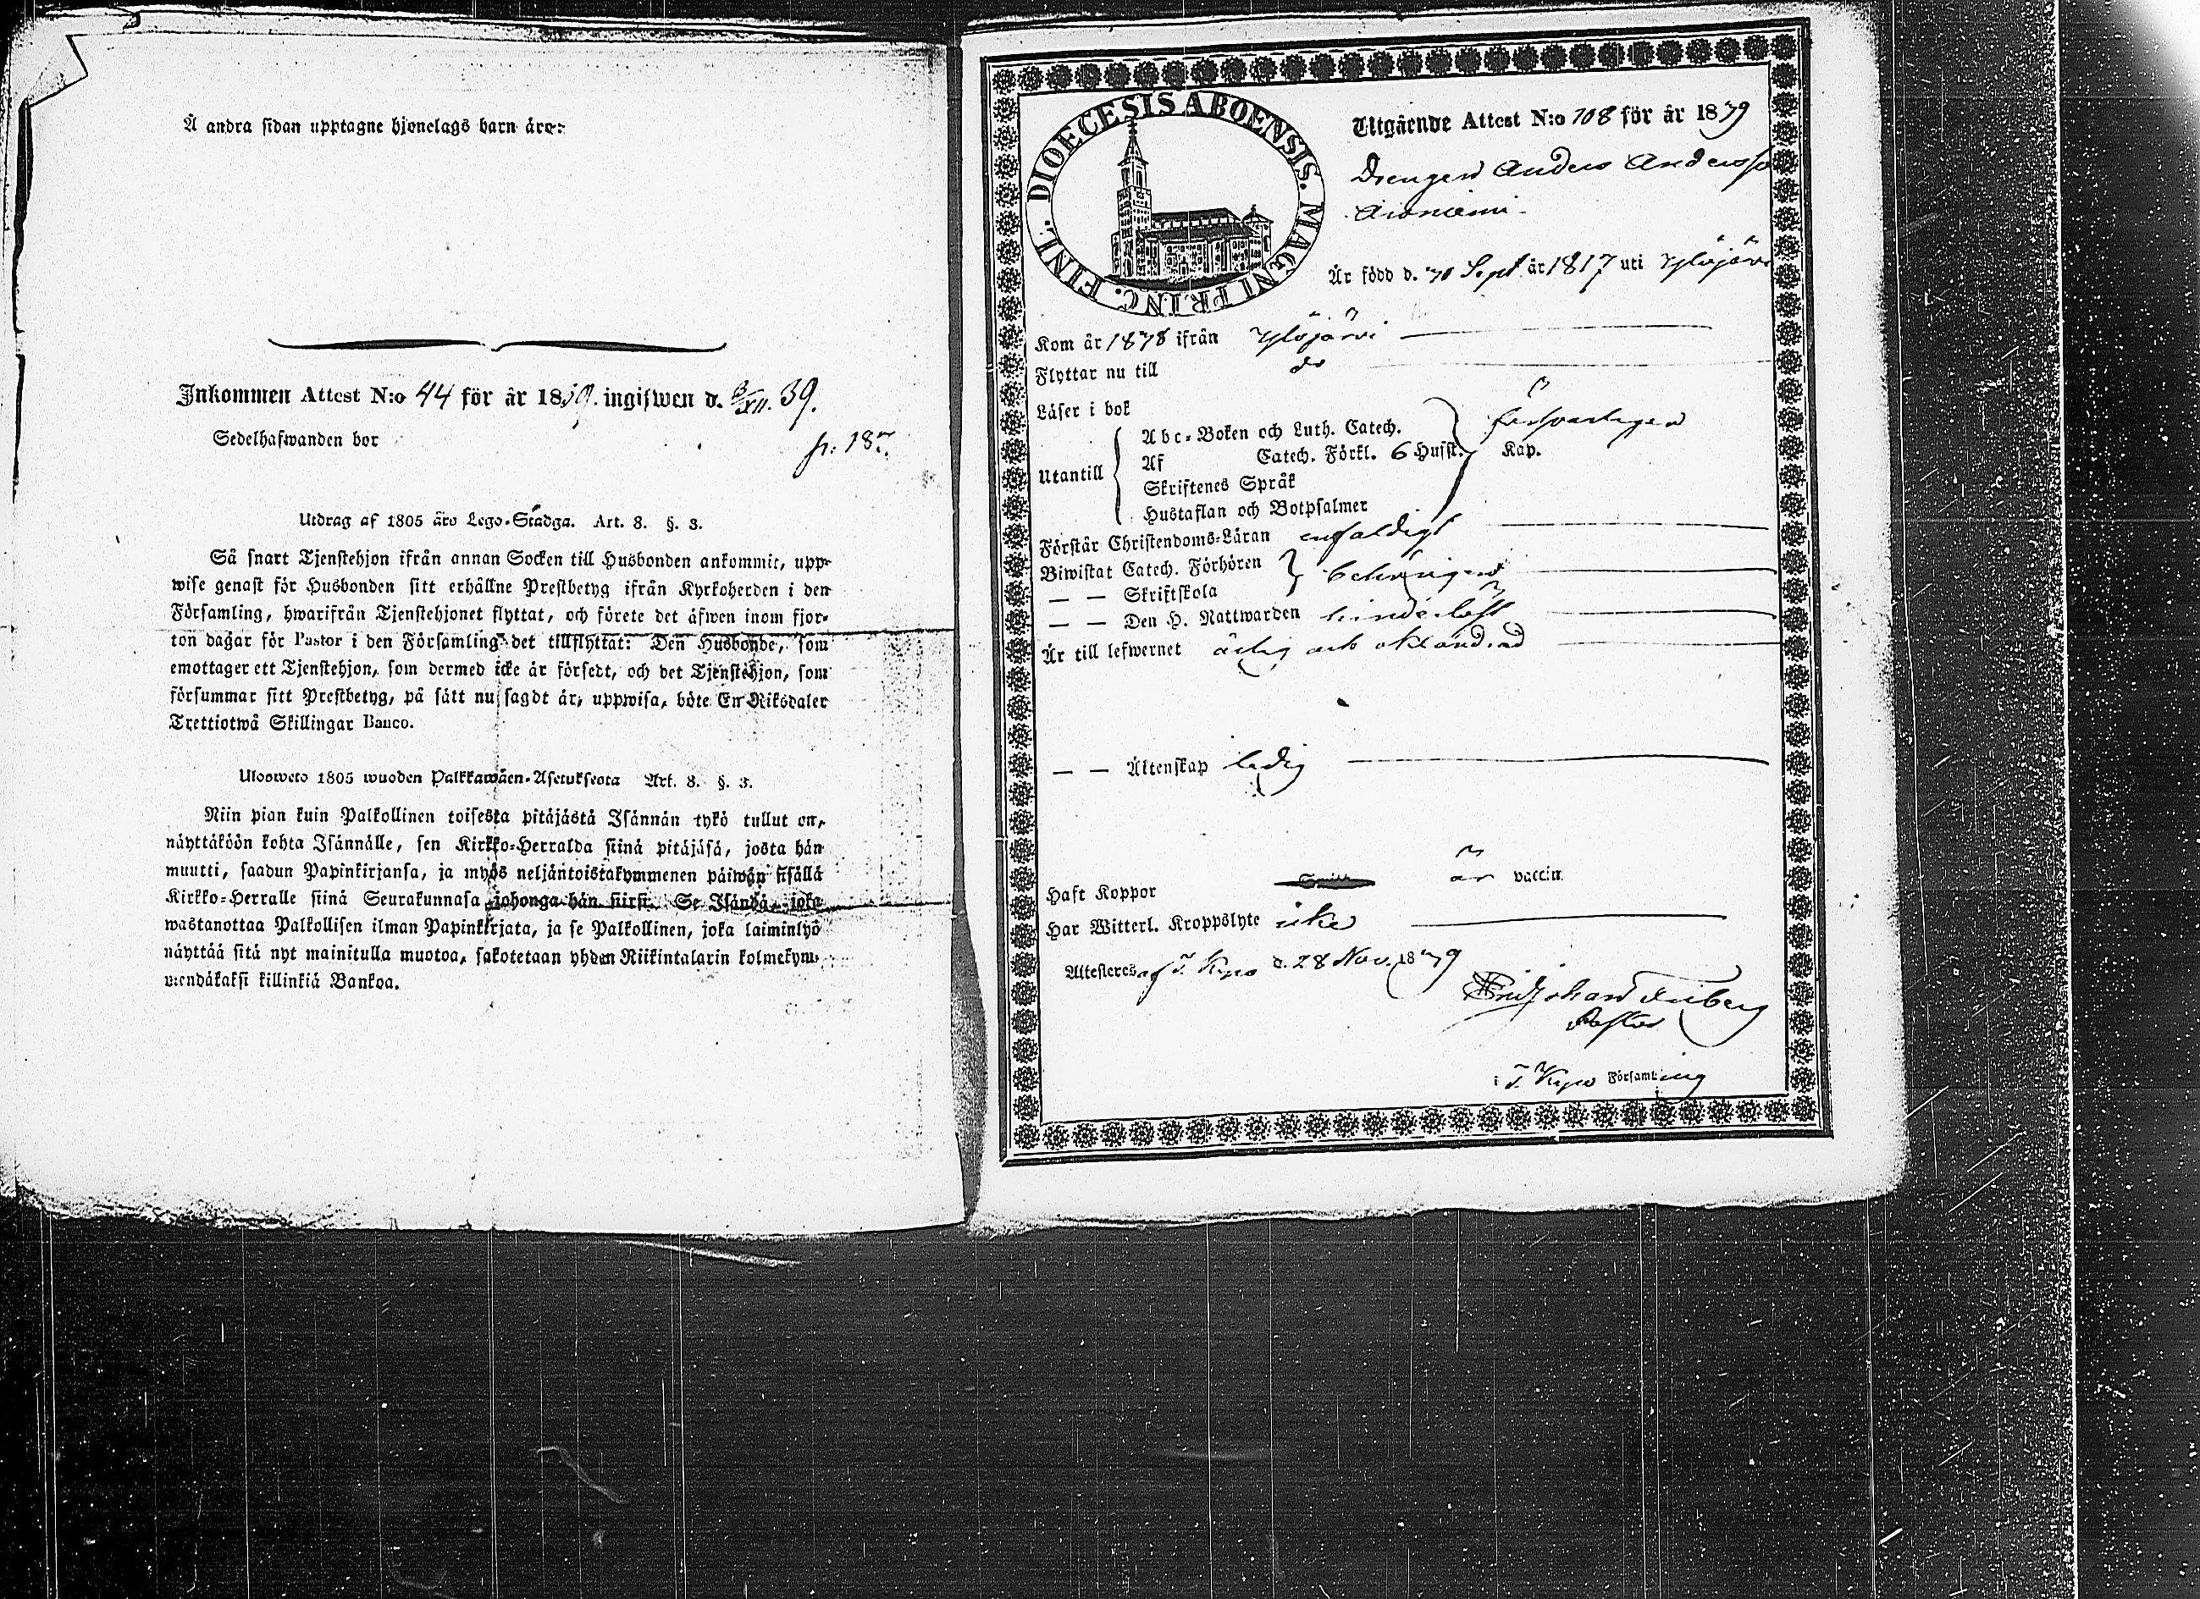 Å andra sidan upptagne hjonelags barn äro:
Inkommen Attest N:o 44 för år 1839. ingifwen d. 3/XII. 39.
Sedelhafwanden bor
p. 187.
Utdrag af 1805 års Lego-Stadga. Art. 8. §. 3.
Så snart Tjenstehjon ifrån annan Socken till Husbonden ankommit, upp-
wise genast för Husbonden sitt erhållne Prestbetyg ifrån Kyrkoherden i den
Församling, hwarifrån Tjenstehjonet flyttat, och förete det äfwen inom fjor-
ton dagar för Pastor i den Församling det tillflyttat: Den Husbonde, som
emottager ett Tjenstehjon, som dermed icke är försedt, och det Tjenstehjon, som
försummar sitt Prestbetyg, på sätt nu sagdt är, uppwisa, böte En Riksdaler
Trettiotwå Skillingar Banco.
Ulosweto 1805 wuoden Palkkawäen-Asetuksesta Art. 8. §. 3.
Niin pian kuin Palkollinen toisesta pitäjästä Isännän tykö tullut on,
näyttäköön kohta Isännälle, sen Kirkko-Herralda siinä pitäjäsä, josta hän
muutti, saadun Papinkirjansa, ja myös neljäntoistakymmenen päiwän sisällä
Kirkko-Herralle siinä Seurakunnasa johonga hän siirsi. Se Isändä, joka
wastanottaa Palkollisen ilman Papinkirjata, ja se Palkollinen, joka laiminlyö
näyttää sitä nyt mainitulla muotoa, sakotetaan yhden Riikintalarin kolmekym-
mendäkaksi killinkiä Bankoa.
DIOECESIS ABOENSIS. MAGNI PRINC. FINL.
Utgående Attest N:o 108 för år 1839
Drengen Anders Andersso
Är född d. Sept. år 1817 uti Ylöjärvi
Kom år 1838 ifrån Ylöjärvi
Flyttar nu till do
Läser i bok
Utantill
Abc-Boken och Luth. Catech. försvarligen
Af Catech. Förkl. 6 Husst. Kap.
Skriftenes Språk
Hustaflan och Botpsalmer
Förstår Christendoms-Läran enfaldigt
Biwistat Catech. Förhören behörigen
— — Skriftskola
— — Den H. Nattwarden hinderlöst
Är till lefwernet ärlig och oklandrad
— — Äktenskap ledig
Haft Koppor är vaccin
Har Witterl. Kroppslyte icke
Attesteres af T. Kyro d. 28 Nov. 1839
Friberg
Pastor
i T. Kyro Församling